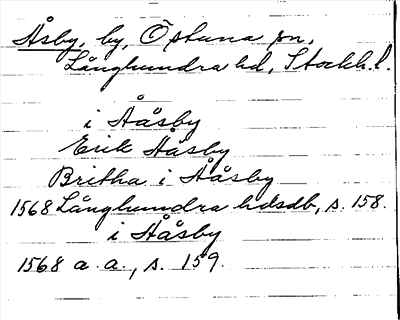 Åsby, by, Östuna sn,
Långhundra hd, Stockh.l.
i Håsby
Erik Håsby
Britha i Håsby
1568 Långhundra hdsdb, s. 158.
i Håsby
1568 a.a., s. 159.